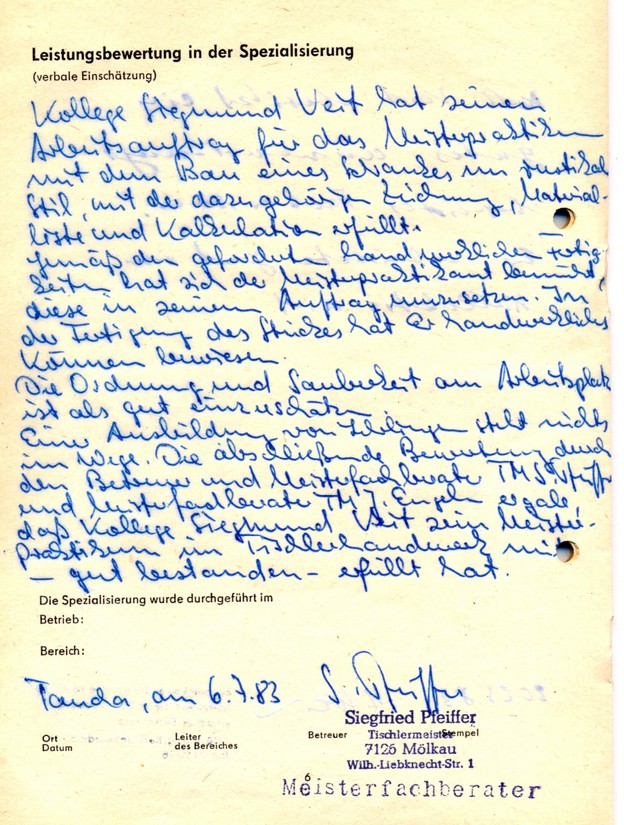 Leistungsbewertung in der Spezialisierung
(verbale Einschätzung)
Kollege Siegmund Veit hat seinen
Arbeitsauftrag für das Meisterpraktikum
mit dem Bau eines Schrankes im rustikal
Stil, mit der dazugehörigen Zeichnung, Material-
liste und Kalkulation erfüllt.
Gemäß den geforderten handwerklichen Fertig-
keiten hat sich der Meisterpraktikant bemüht,
diese in seinem Auftrag umzusetzen. In
der Fertigung des Stückes hat er handwerkliches
Können bewiesen.
Die Ordnung und Sauberkeit am Arbeitsplatz
ist als gut einzuschätzen.
Einer Ausbildung von Lehrlingen steht nichts
im Wege. Die abschließende Bewertung durch
den Betreuer und Meisterfachberater TM S. Pfeiffer
und Meisterfachberater TM J. Engeln ergab,
daß Kollege Siegmund Veit sein Meister-
praktikum im Tischlerhandwerk mit
– gut bestanden – erfüllt hat.
Die Spezialisierung wurde durchgeführt im
Betrieb:
Bereich:
Taucha, am 6.7.83 S. Pfeiffer
Siegfried Pfeiffer
Ort Leiter Betreuer Tischlermeister Stempel
Datum des Bereiches 7126 Mölkau
Wilh.-Liebknecht-Str. 1
6
Meisterfachberater